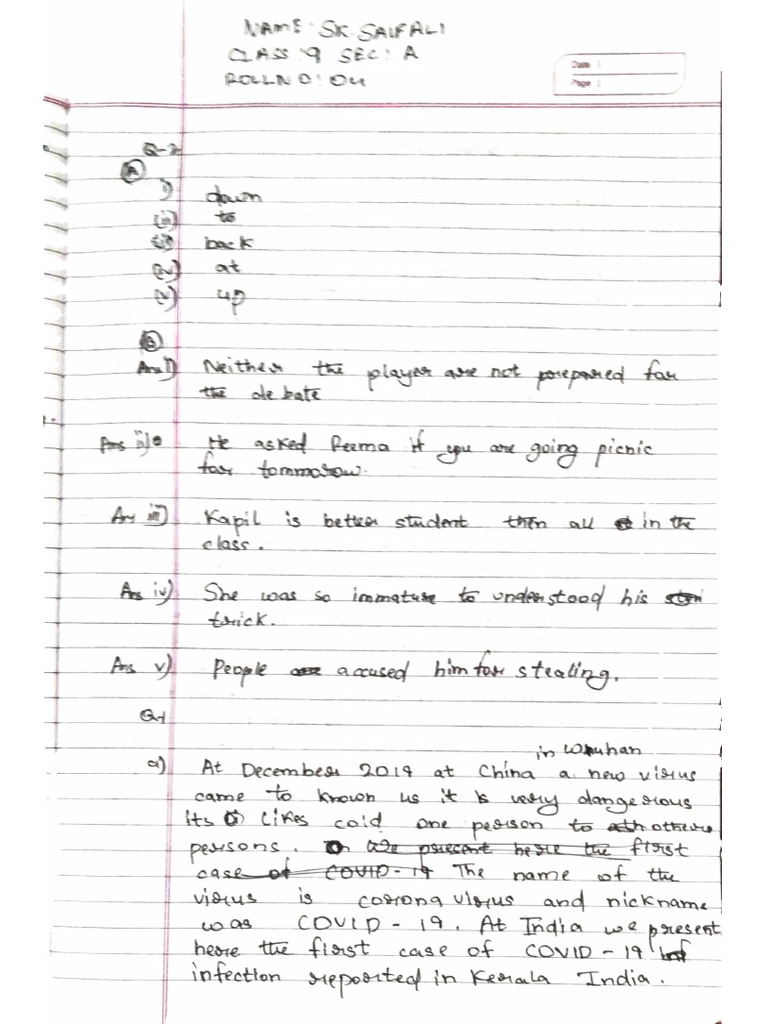 NAME: SK. SAIFALI
CLASS: 9 SEC: A
ROLLNO: 04
Date :
Page :
Q-2
A
i) down
(ii) to
back
(iv) at
(v) up
B
Ans i) Neither the player are not prepared for
the debate
Ans ii) He asked Reema if you are going picnic
for tommorow.
Ans iii) Kapil is better student then all in the
class.
Ans iv) She was so immature to understood his
trick.
Ans v) People accused him for stealing.
Q1
in Wuhan
a) At December 2019 at China a new virus
came to known us it is very dangerous
its likes cold one person to others
persons. We present here the first
case of COVID-19 The name of the
virus is corona virus and nickname
was COVID-19. At India we present
here the first case of COVID-19
infection reported in Kerala India.